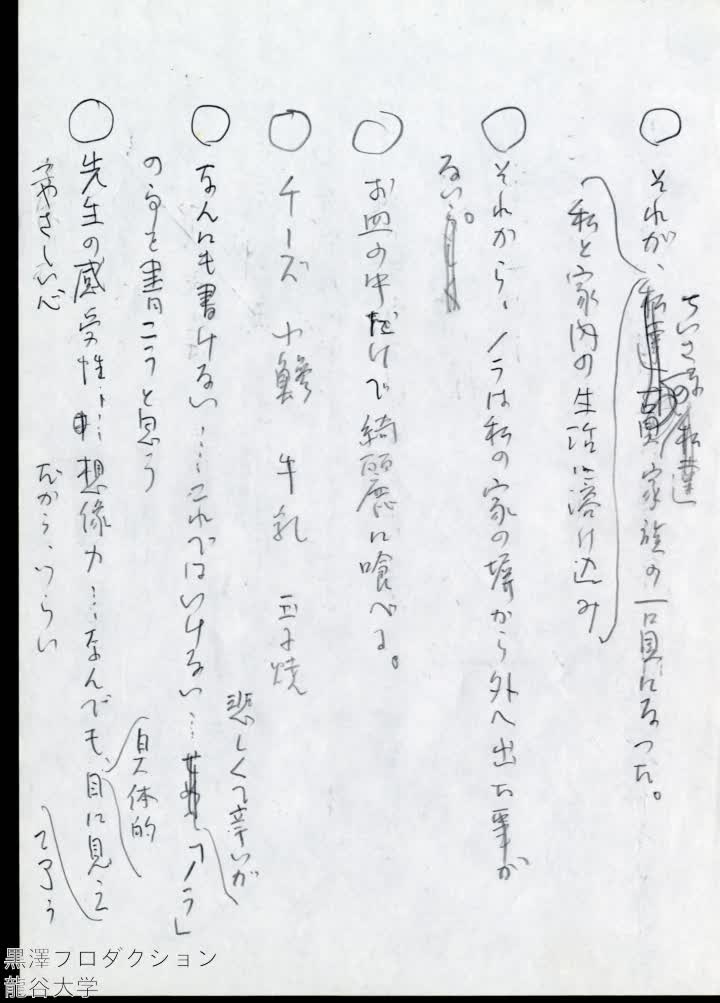 ○それが、家族の一員になった。
ちいさな私達の
私と家内の生活に溶け込み
○それから、ノラは私の家の塀から外へ出た事が
ない。
○お皿の中だけで綺麗に喰べる。
○チーズ 小鯵 牛乳 玉子焼
○なんにも書けない……これではいけない…「ノラ」
悲しくて辛いが
のことを書こうと思う
○先生の感受性…想像力…なんでも、目に見えて了う
具体的
やさしい心 だから、つらい
黒澤プロダクション
龍谷大学